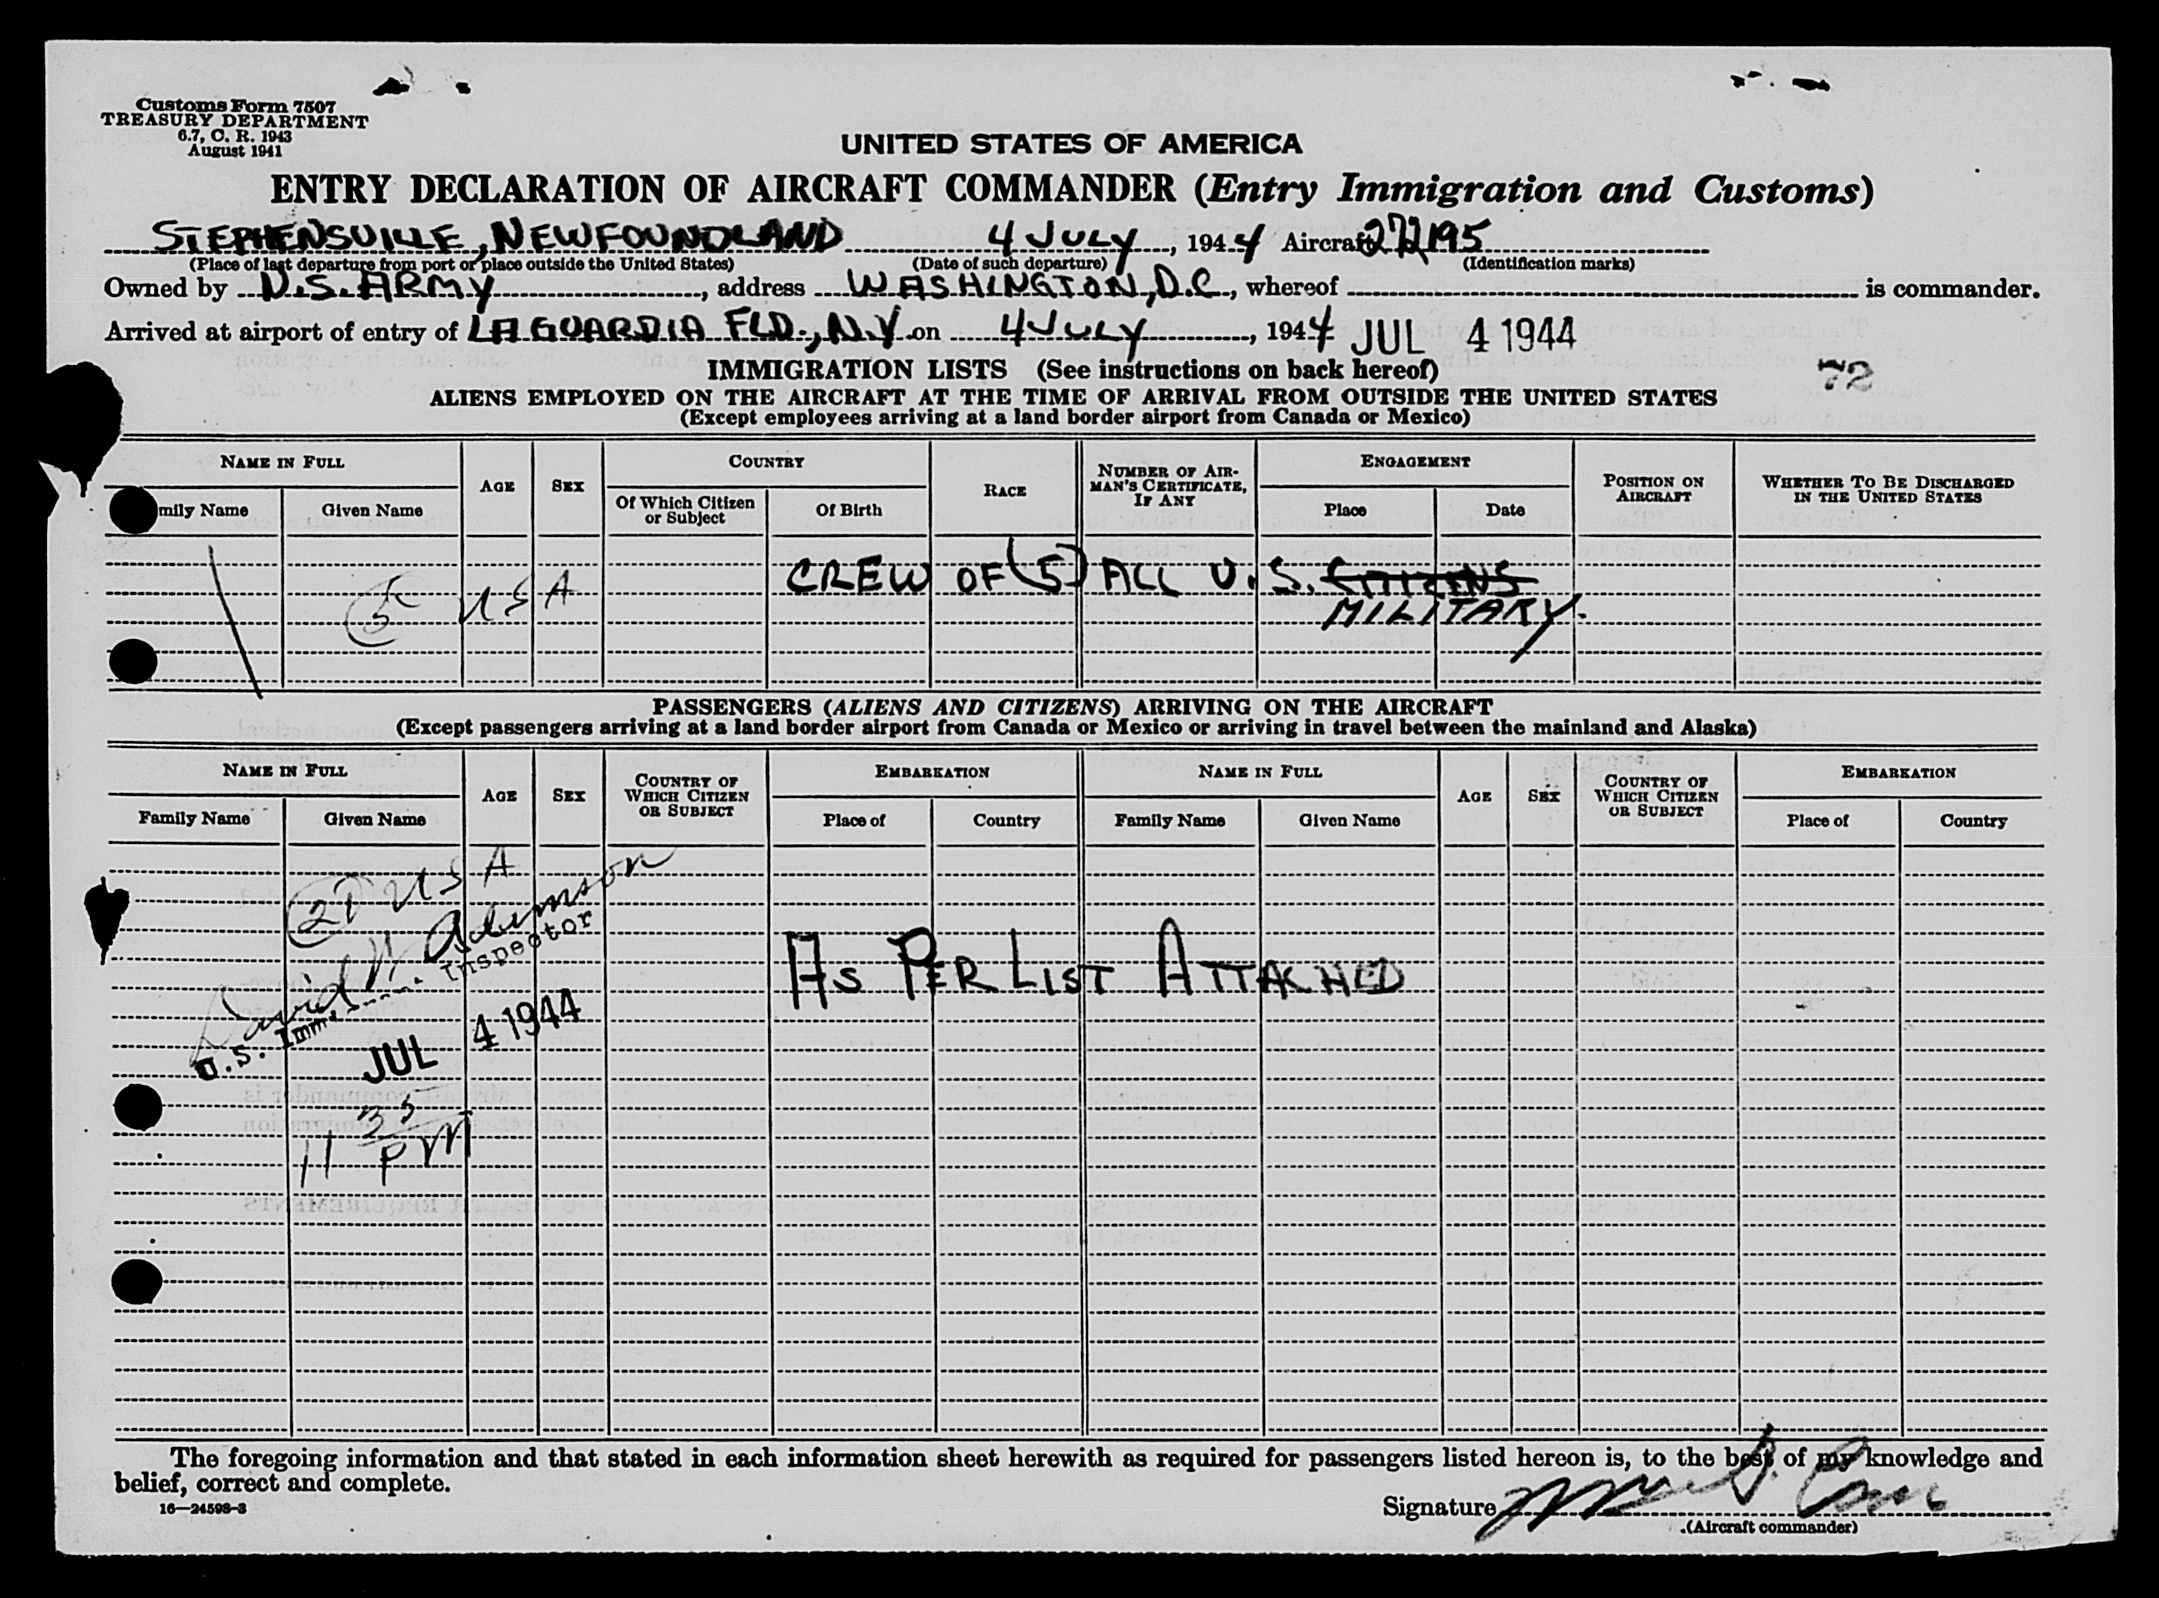 Customs Form 7507
TREASURY DEPARTMENT
6.7, C. R. 1943
August 1941
UNITED STATES OF AMERICA
ENTRY DECLARATION OF AIRCRAFT COMMANDER (Entry Immigration and Customs)
STEPHENSVILLE, NEWFOUNDLAND 4 JULY, 1944 Aircraft 272195
(Place of last departure from port or place outside the United States) (Date of such departure) (Identification marks)
Owned by U.S. ARMY, address WASHINGTON, D.C., whereof is commander.
Arrived at airport of entry of LA GUARDIA FLD., N.Y. on 4 JULY, 1944 JUL 4 1944
IMMIGRATION LISTS (See instructions on back hereof)
72
ALIENS EMPLOYED ON THE AIRCRAFT AT THE TIME OF ARRIVAL FROM OUTSIDE THE UNITED STATES
(Except employees arriving at a land border airport from Canada or Mexico)
NAME IN FULL AGE SEX COUNTRY RACE NUMBER OF AIRMAN'S CERTIFICATE, IF ANY ENGAGEMENT POSITION ON AIRCRAFT WHETHER TO BE DISCHARGED IN THE UNITED STATES
mily Name Given Name Of Which Citizen or Subject Of Birth Place Date
CREW OF (5) ALL U.S. CITIZENS
5 USA MILITARY.
PASSENGERS (ALIENS AND CITIZENS) ARRIVING ON THE AIRCRAFT
(Except passengers arriving at a land border airport from Canada or Mexico or arriving in travel between the mainland and Alaska)
NAME IN FULL AGE SEX COUNTRY OF WHICH CITIZEN OR SUBJECT EMBARKATION NAME IN FULL AGE SEX COUNTRY OF WHICH CITIZEN OR SUBJECT EMBARKATION
Family Name Given Name Place of Country Family Name Given Name Place of Country
21 USA
David W. Adamson
U.S. Imm. Inspector
AS PER LIST ATTACHED
JUL 4 1944
11 35 PM
The foregoing information and that stated in each information sheet herewith as required for passengers listed hereon is, to the best of my knowledge and
belief, correct and complete.
16—24598-3
Signature
(Aircraft commander)